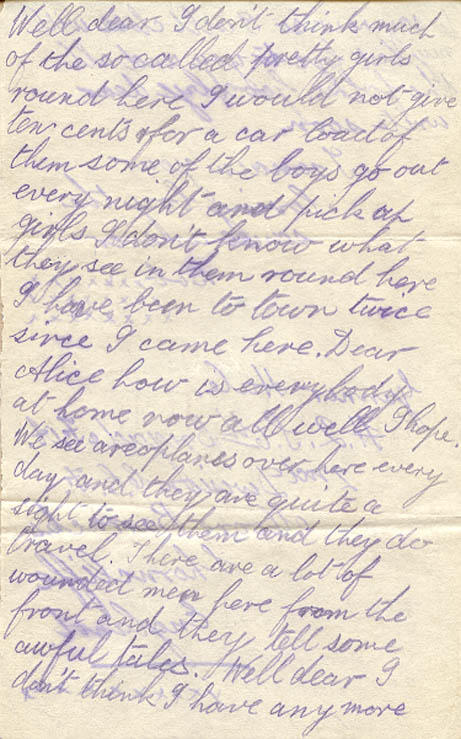 Well dear I don't think much
of the so called pretty girls
round here I would not give
ten cents for a car load of
them some of the boys go out
every night and pick up
girls I don't know what
they see in them round here
I have been to town twice
since I came here. Dear
Alice how is everybody
at home now all well I hope.
We see areoplanes over here every
day and they are quite a
sight to see them and they do
travel. There are a lot of
wounded men here from the
front and they tell some
awful tales. Well dear I
don't think I have any more